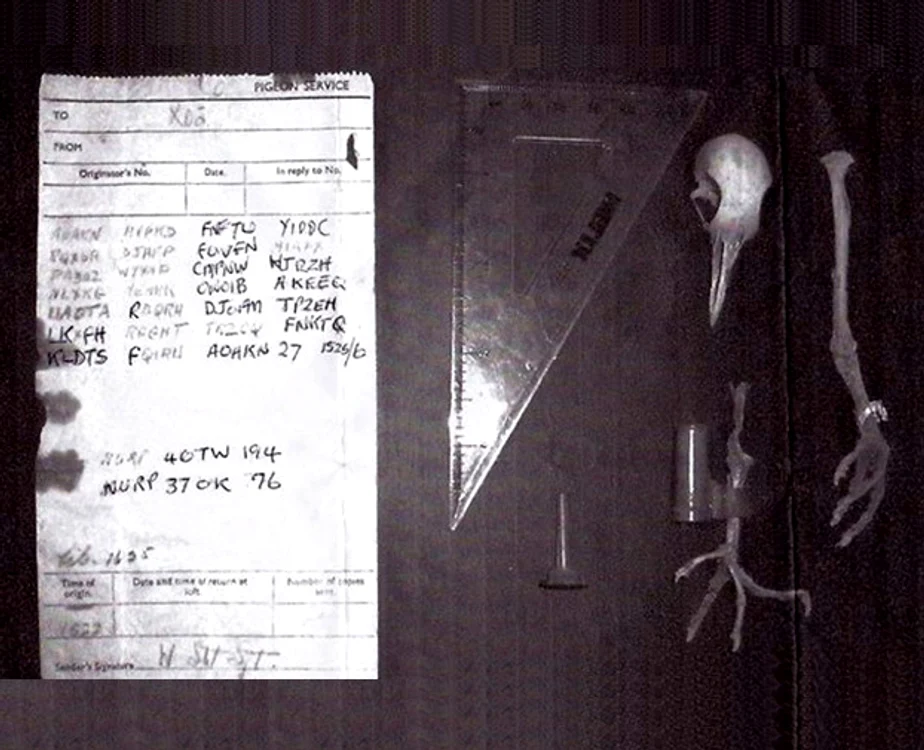 PIGEON SERVICE
TO X02
FROM
Originator's No. Date. In reply to No.
AOAKN HVPKD FNFTW YIDDC
RQXSR DJHFP FOVFN MIAPX
PABUZ WYYNP CMPNW HJRZH
NLXKG MEMKK ONOIB AKEEQ
UAOTA RBQRH DJOFM TPZEH
LKXGH RGGHT JRZCQ FNKTQ
KLDTS FQIRW AOAKN 27 1525/6
NURP 40TW 194
NURP 37OK 76
lib. 1625
Time of origin. Date and time of return at loft. Number of copies sent.
1522
Sender's Signature W Stot Sjt.